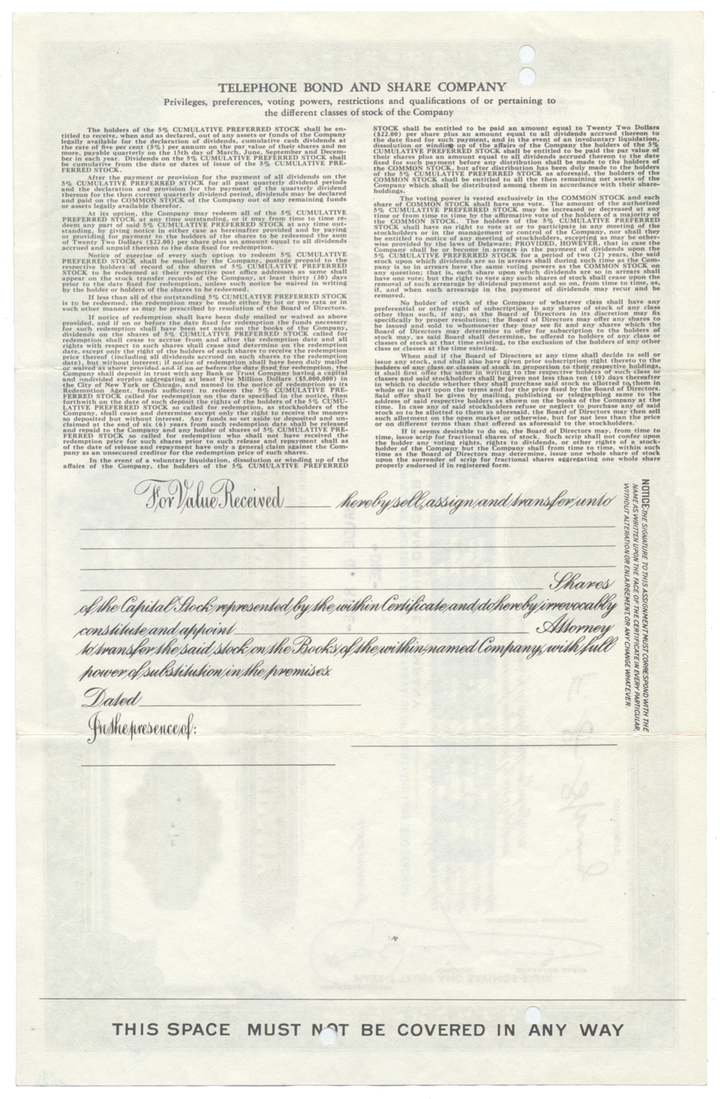 TELEPHONE BOND AND SHARE COMPANY
Privileges, preferences, voting powers, restrictions and qualifications of or pertaining to
the different classes of stock of the Company
The holders of the 5% CUMULATIVE PREFERRED STOCK shall be en-
titled to receive, when and as declared, out of any assets or funds of the Company
legally available for the declaration of dividends, cumulative cash dividends at
the rate of five per cent (5%) per annum on the par value of their shares and no
more, payable quarterly on the 15th day of March, June, September and Decem-
ber in each year. Dividends on the 5% CUMULATIVE PREFERRED STOCK shall
be cumulative from the date or dates of issue of the 5% CUMULATIVE PRE-
FERRED STOCK.
After the payment or provision for the payment of all dividends on the
5% CUMULATIVE PREFERRED STOCK for all past quarterly dividend periods
and the declaration and provision for the payment of the quarterly dividend
thereon for the then current quarterly dividend period, dividends may be declared
and paid on the COMMON STOCK of the Company out of any remaining funds
or assets legally available therefor.
At its option, the Company may redeem all of the 5% CUMULATIVE
PREFERRED STOCK at any time outstanding, or it may from time to time re-
deem any part of said 5% CUMULATIVE PREFERRED STOCK at any time out-
standing, by giving notice in either case as hereinafter provided and by paying
or providing for payment to the holders of the shares to be redeemed the sum
of Twenty Two Dollars ($22.00) per share plus an amount equal to all dividends
accrued and unpaid thereon to the date fixed for redemption.
Notice of exercise of every such option to redeem 5% CUMULATIVE
PREFERRED STOCK shall be mailed by the Company, postage prepaid to the
respective holders of record of the shares of 5% CUMULATIVE PREFERRED
STOCK to be redeemed at their respective post office addresses as same shall
appear on the stock transfer records of the Company, at least thirty (30) days
prior to the date fixed for redemption, unless such notice be waived in writing
by the holder or holders of the shares to be redeemed.
If less than all of the outstanding 5% CUMULATIVE PREFERRED STOCK
is to be redeemed, the redemption may be made either by lot or pro rata or in
such other manner as may be prescribed by resolution of the Board of Directors.
If notice of redemption shall have been duly mailed or waived as above
provided, and if on or before the date fixed for redemption the funds necessary
for such redemption shall have been set aside on the books of the Company,
dividends on the shares of 5% CUMULATIVE PREFERRED STOCK called for
redemption shall cease to accrue from and after the redemption date and all
rights with respect to such shares shall cease and determine on the redemption
date, except only the right of the holders of such shares to receive the redemption
price thereof (including all dividends accrued on such shares to the redemption
date), but without interest; if notice of redemption shall have been duly mailed
or waived as above provided and if on or before the date fixed for redemption, the
Company shall deposit in trust with any Bank or Trust Company having a capital
and undivided surplus aggregating at least Five Million Dollars ($5,000,000) in
the City of New York or Chicago, and named in the notice of redemption as its
Redemption Agent, funds sufficient to redeem the 5% CUMULATIVE PRE-
FERRED STOCK called for redemption on the date specified in the notice, then
forthwith on the date of such deposit the rights of the holders of the 5% CUMU-
LATIVE PREFERRED STOCK so called for redemption, as stockholders of the
Company, shall cease and determine except only the right to receive the moneys
so deposited but without interest. Any funds so set aside or deposited and un-
claimed at the end of six (6) years from such redemption date shall be released
and repaid to the Company and any holder of shares of 5% CUMULATIVE PRE-
FERRED STOCK so called for redemption who shall not have received the
redemption price for such shares prior to such release and repayment shall as
of the date of release and repayment have only a general claim against the Com-
pany as an unsecured creditor for the redemption price of such shares.
In the event of a voluntary liquidation, dissolution or winding up of the
affairs of the Company, the holders of the 5% CUMULATIVE PREFERRED
STOCK shall be entitled to be paid an amount equal to Twenty Two Dollars
($22.00) per share plus an amount equal to all dividends accrued thereon to
the date fixed for such payment, and in the event of an involuntary liquidation,
dissolution or winding up of the affairs of the Company the holders of the 5%
CUMULATIVE PREFERRED STOCK shall be entitled to be paid the par value of
their shares plus an amount equal to all dividends accrued thereon to the date
fixed for such payment before any distribution shall be made to the holders of
the COMMON STOCK, but after distribution has been duly made to the holders
of the 5% CUMULATIVE PREFERRED STOCK as aforesaid, the holders of the
COMMON STOCK shall be entitled to all the then remaining net assets of the
Company which shall be distributed among them in accordance with their share-
holdings.
The voting power is vested exclusively in the COMMON STOCK and each
share of COMMON STOCK shall have one vote. The amount of the authorized
5% CUMULATIVE PREFERRED STOCK may be increased or decreased at any
time or from time to time by the affirmative vote of the holders of a majority of
the COMMON STOCK. The holders of the 5% CUMULATIVE PREFERRED
STOCK shall have no right to vote at or to participate in any meeting of the
stockholders or in the management or control of the Company, nor shall they
be entitled to notice of any meeting of stockholders, excepting as may be other-
wise provided by the laws of Delaware; PROVIDED, HOWEVER, that in case the
Company shall be or become in arrears in the payment of dividends upon the
5% CUMULATIVE PREFERRED STOCK for a period of two (2) years, the said
stock upon which dividends are so in arrears shall during such time as the Com-
pany is so in arrears have the same voting powers as the COMMON STOCK on
any question; that is, each share upon which dividends are so in arrears shall
have one vote; but the right to vote any such shares of stock shall cease upon the
removal of such arrearage by dividend payment and so on, from time to time, as,
if, and when such arrearage in the payment of dividends may recur and be
removed.
No holder of stock of the Company of whatever class shall have any
preferential or other right of subscription to any shares of stock of any class
other than such, if any, as the Board of Directors in its discretion may fix
specifically by proper resolution; the Board of Directors may offer any shares to
be issued and sold to whomsoever they may see fit and any shares which the
Board of Directors may determine to offer for subscription to the holders of
stock may, as said Board shall determine, be offered to holders of any class or
classes of stock at that time existing, to the exclusion of the holders of any other
class or classes at the time existing.
When and if the Board of Directors at any time shall decide to sell or
issue any stock, and shall also have given prior subscription right thereto to the
holders of any class or classes of stock in proportion to their respective holdings,
it shall first offer the same in writing to the respective holders of such class or
classes and said stockholders shall be given not less than ten (10) days thereafter
in which to decide whether they shall purchase said stock so allotted to them in
whole or in part upon the terms and for the price fixed by the Board of Directors.
Said offer shall be given by mailing, publishing or telegraphing same to the
address of said respective holders as shown on the books of the Company at the
time. In case any of said stockholders refuse or neglect to purchase any of said
stock so to be allotted to them as aforesaid, the Board of Directors may then sell
such allotment on the open market or otherwise, but for not less than the price
or on different terms than that offered as aforesaid to the stockholders.
If it seems desirable to do so, the Board of Directors may, from time to
time, issue scrip for fractional shares of stock. Such scrip shall not confer upon
the holder any voting rights, rights to dividends, or other rights of a stock-
holder of the Company but the Company shall from time to time, within such
time as the Board of Directors may determine, issue one whole share of stock
upon the surrender of scrip for fractional shares aggregating one whole share
properly endorsed if in registered form.
For Value Received hereby sell, assign and transfer unto
Shares
of the Capital Stock represented by the within Certificate and do hereby irrevocably
constitute and appoint Attorney
to transfer the said stock on the Books of the within-named Company, with full
power of substitution in the premises.
Dated
In the presence of:
NOTICE: THE SIGNATURE TO THIS ASSIGNMENT MUST CORRESPOND WITH THE
NAME AS WRITTEN UPON THE FACE OF THE CERTIFICATE IN EVERY PARTICULAR,
WITHOUT ALTERATION OR ENLARGEMENT, OR ANY CHANGE WHATEVER.
THIS SPACE MUST NOT BE COVERED IN ANY WAY